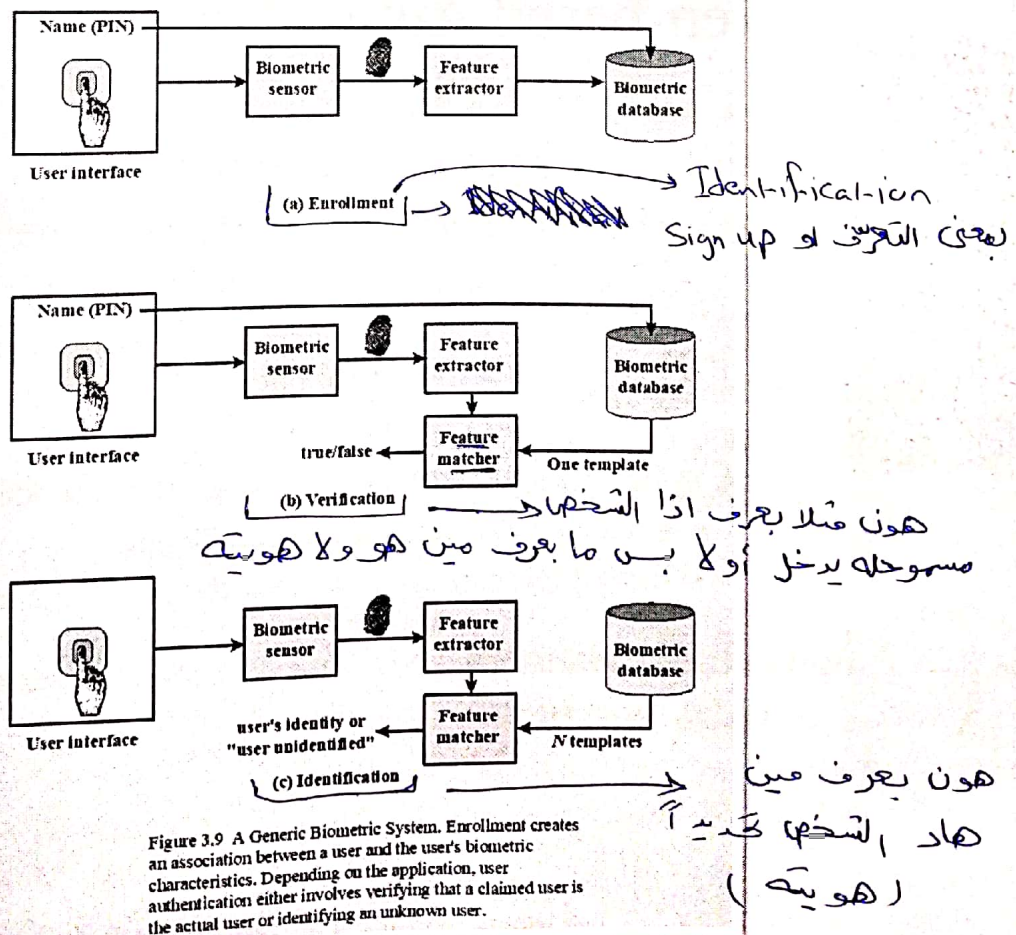 Name (PIN)
Biometric
sensor
Feature
extractor
Biometric
database
User interface
(a) Enrollment
Identification
Sign up بمعنى التعرّف او
Name (PIN)
Biometric
sensor
Feature
extractor
Biometric
database
Feature
matcher
true/false
One template
User interface
(b) Verification
هون مثلا بعرف اذا الشخص
مسموحله يدخل أولا بس ما بعرف مين هو ولا هويته
Biometric
sensor
Feature
extractor
Biometric
database
Feature
matcher
user's identity or
"user unidentified"
N templates
User interface
(c) Identification
هون بعرف مين
هاد الشخص تحديداً
(هويته)
Figure 3.9 A Generic Biometric System. Enrollment creates
an association between a user and the user's biometric
characteristics. Depending on the application, user
authentication either involves verifying that a claimed user is
the actual user or identifying an unknown user.